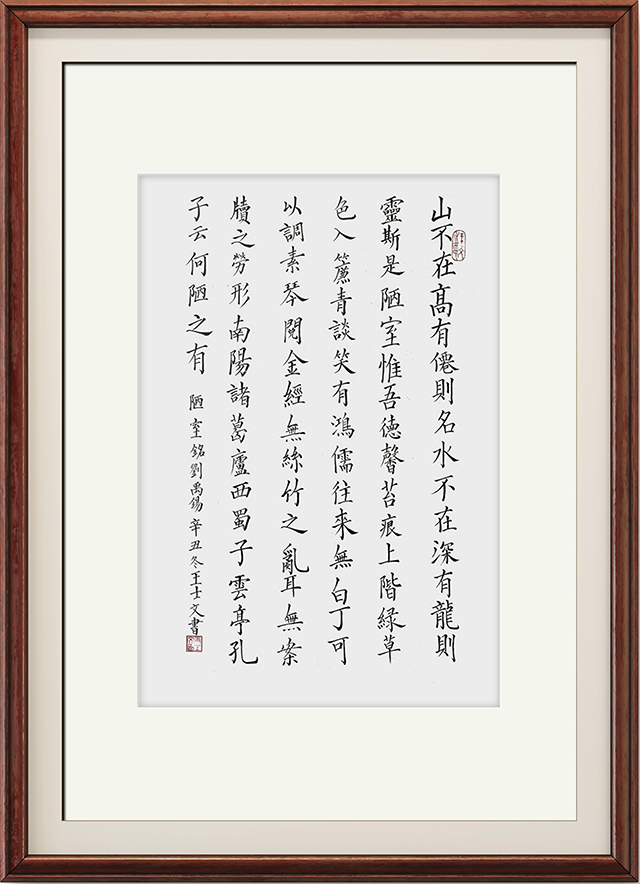 山不在高有僊則名水不在深有龍則
靈斯是陋室惟吾德馨苔痕上階緑草
色入簾青談笑有鴻儒往来無白丁可
以調素琴閱金經無絲竹之亂耳無案
牘之勞形南陽諸葛廬西蜀子雲亭孔
子云何陋之有
陋室銘劉禹錫辛丑冬王士文書